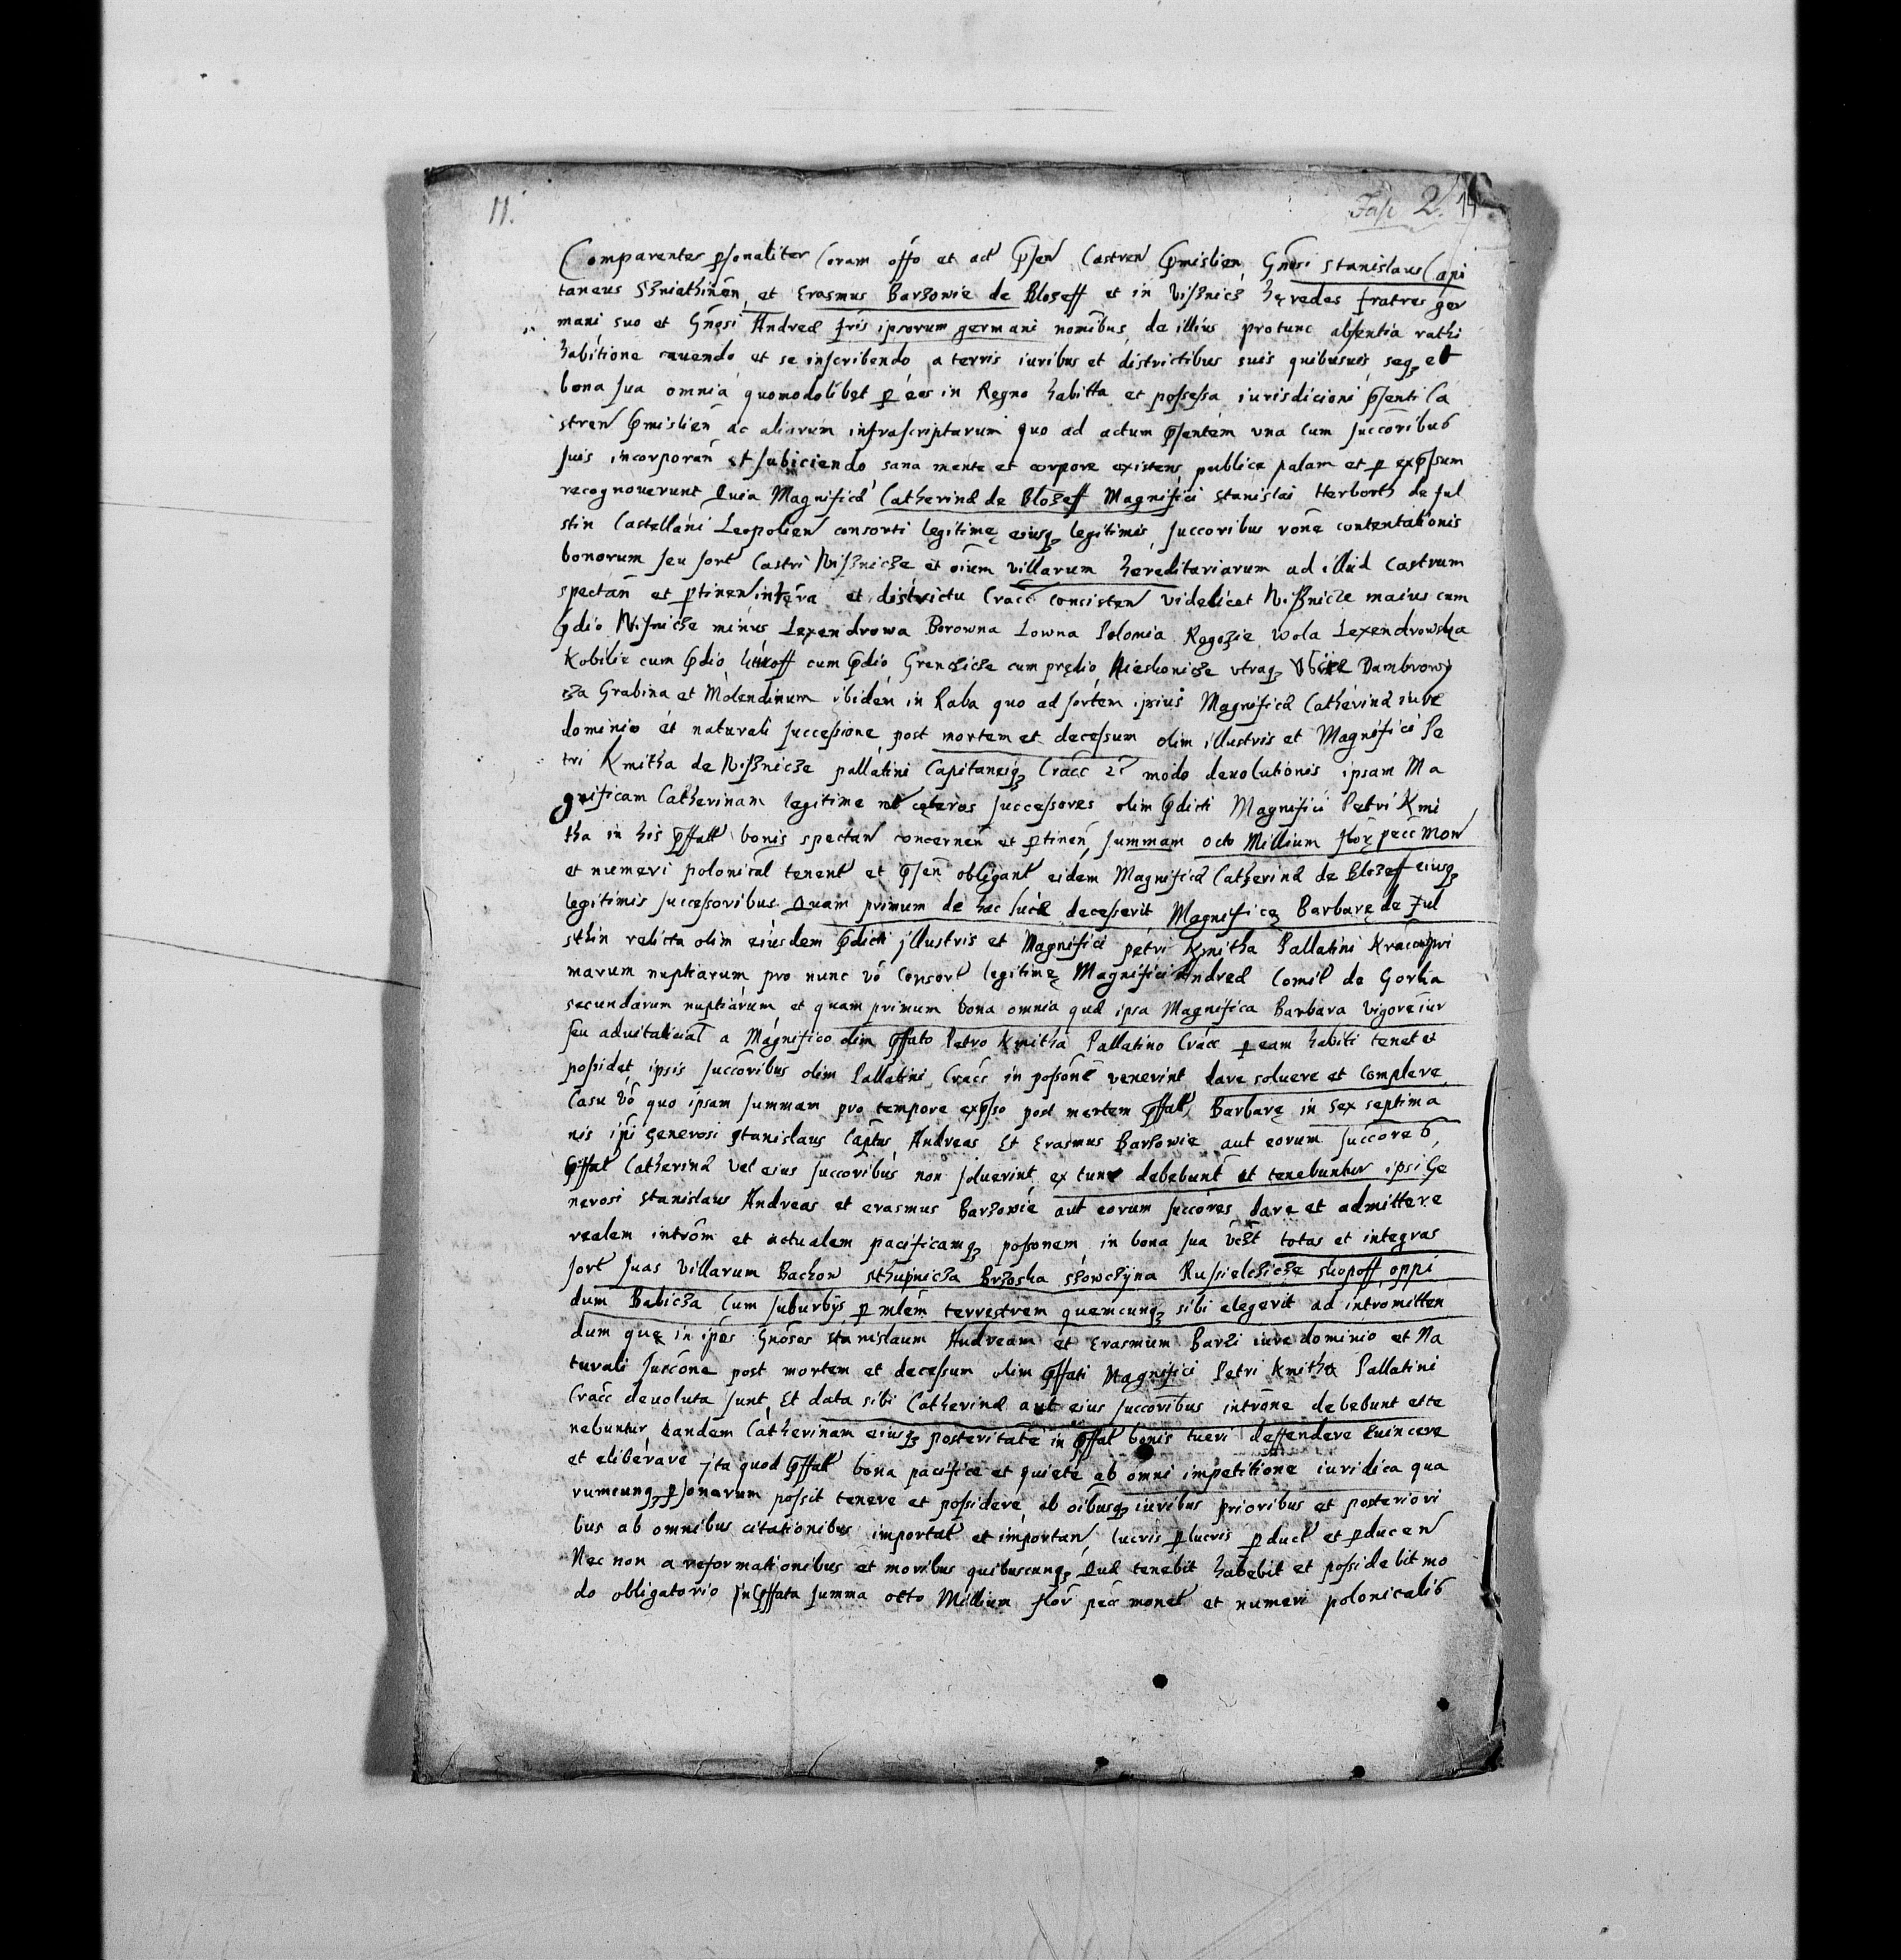 11.
Fasc 2. 14
Comparentes psonaliter Coram offo et act psen Castren pmislien Gnosi Stanislaus Capi
taneus Szniathinen et Erasmus Barzowie de Blozeff et in Vissnicz heredes fratres ger
mani suo et Gnosi Andreæ fris ipsorum germani nomibus de illius protunc absentia rathi
habitione cauendo et se inscribendo a terris iuribus et districtibus suis quibusuis seq et
bona sua omnia quomodolibet p eos in Regno habitta et possessa iurisdicioni psenti Ca
stren pmislien ac aliarum infrascriptarum quo ad actum psentem vna cum succoribus
suis incorporan et subiciendo sana mente et corpore existens publice palam et p expssum
recognouerunt Quia Magnificæ Catherinæ de Blozeff Magnifici Stanislai Herborth de ful
stin Castellani Leopolien consorti legitimę eiusq legitimis succoribus rone contentationis
bonorum seu sort Castri Vissnicze et oium villarum hereditariarum ad illud Castrum
spectan et ptinen in terra et districtu Cracc consisten videlicet Vissnicze maius cum
pdio Visnicze minus Lexendrowa Borowna Lowna Polomia Rogozie Wola Lexendrowska
Kobilie cum pdio cum pdio Grenczicze cum prędio Nieskonicze vtraq Dambrowy
cza Grabina et Molendinum ibidem in Raba quo ad sortem ipsius Magnificæ Catherinæ iure
dominio et naturali successione post mortem et decessum olim illustris et Magnifici Pe
tri Kmitha de Vissnicze pallatini Capitaneiq Cracc modo deuolutionis ipsam Ma
gnificam Catherinam legitime ut cęteros successores olim pdicti Magnifici Petri Kmi
tha in his pffatt bonis spectan concernen et ptinen summam octo Millium flor pecc Mon
et numeri polonical tenent et psen obligant eidem Magnificæ Catherinæ de Blozeff eiusq
legitimis successoribus Quam primum de hac lucæ decesserit Magnificę Barbarę de Ful
sthin relicta olim eiusdem pdicti jllustris et Magnifici petri Kmitha Pallatini Kraccpri
marum nuptiarum pro nunc vo Consort legitimę Magnifici Andreæ Comit de Gorka
secundarum nuptiarum et quam primum bona omnia quæ ipsa Magnifica Barbara vigore iur
seu aduitalicial a Magnifico olim pffato Petro Kmitha Pallatino Cracc p eam habiti tenet et
possidet ipsis succoribus olim Pallatini Cracc in possone venerint dare soluere et Complere
Casu vo quo ipsam summam pro tempore expsso post mortem pffatt Barbarę in sex septima
nis ipi generosi Stanislaus Captus Andreas Et Erasmus Barzowie aut eorum succores
pffat Catherinæ vel eius succoribus non soluerint ex tunc debebunt et tenebuntur ipsi Ge
nerosi Stanislaus Andreas et erasmus Barzowie aut eorum succores dare et admittere
realem introm et actualem pacificamq possonem in bona sua vczt totas et integras
sort suas Villarum Bachow Sthupnicza Brzoska Słowczyna Russielczicze skopoff oppi
dum Babicza Cum suburbijs p mlem terrestrem quemcunq sibi elegerit ad intromitten
dum quę in ipos Gnosos Stanislaum Andream et Erasmum Barzi iure dominio et Na
turali succone post mortem et decessum olim pffati Magnifici Petri Kmitha Pallatini
Cracc deuoluta sunt Et data sibi Catherinæ aut eius succoribus introne debebunt et te
nebuntur eandem Catherinam eiusq posteritate in pffat bonis tueri deffendere Euincere
et eliberare jta quod pffatt bona pacifice et quiete ab omni impetitione iuridica qua
rumcunq psonarum possit tenere et possidere ab oibusq iuribus prioribus et posteriori
bus ab omnibus citationibus importat et importan lucris plucris pduct et pducen
Nec non a reformationibus et moribus quibuscunq Quæ tenebit habebit et possidebit mo
do obligatorio in pffata summa octo Millium flor pecc monet et numeri polonicalis